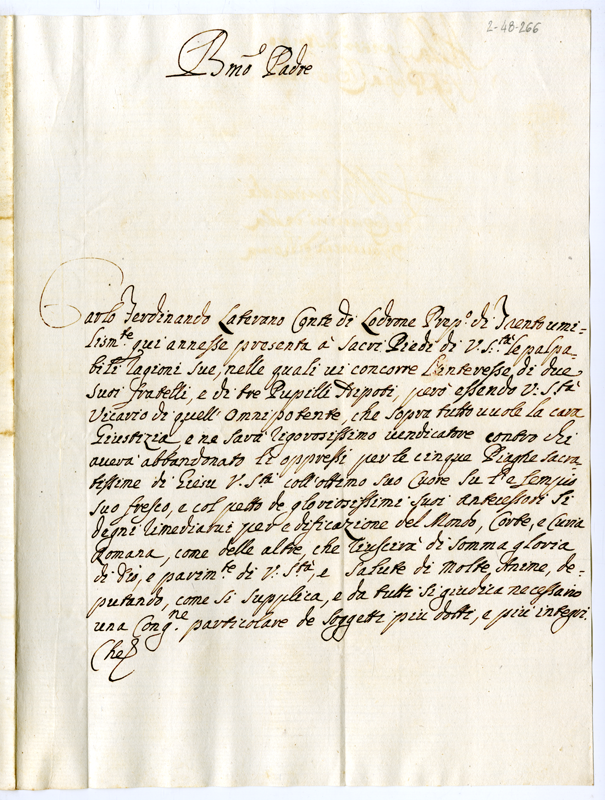 2-48-266
Bmo Padre
Carlo Ferdinando Laterano Conte di Lodrone Prepo. di Trento umi-
lismte. qui annesse presenta à Sacri Piedi di V. Sta. le palpa-
bili ragioni sue, nelle quali vi concorre l'interesse di due
suoi fratelli, e di tre Pupilli Nipoti, però essendo V. Sta
Vicario di quell' Onnipotente, che sopra tutto vuole la cara
Giustizia, e ne sarà rigorosissimo vendicatore contro chi
averà abbandonato li oppressi per le cinque Piaghe sacra-
tissime di Giesu V. Sta coll'ottimo suo Cuore
suo fresco, e col petto de gloriosissimi suoi antecessori si
degni rimediarvi per edificazione del Mondo, Corte, e Curia
Romana, come delle altre, che riuscirà di somma gloria
di Dio, e parimte. di V. Sta, e salute di molte Anime, de-
putando, come si supplica, e da tutti si giudica necessario
una Congne. particolare de Soggetti più dotti, e più integri.
Che